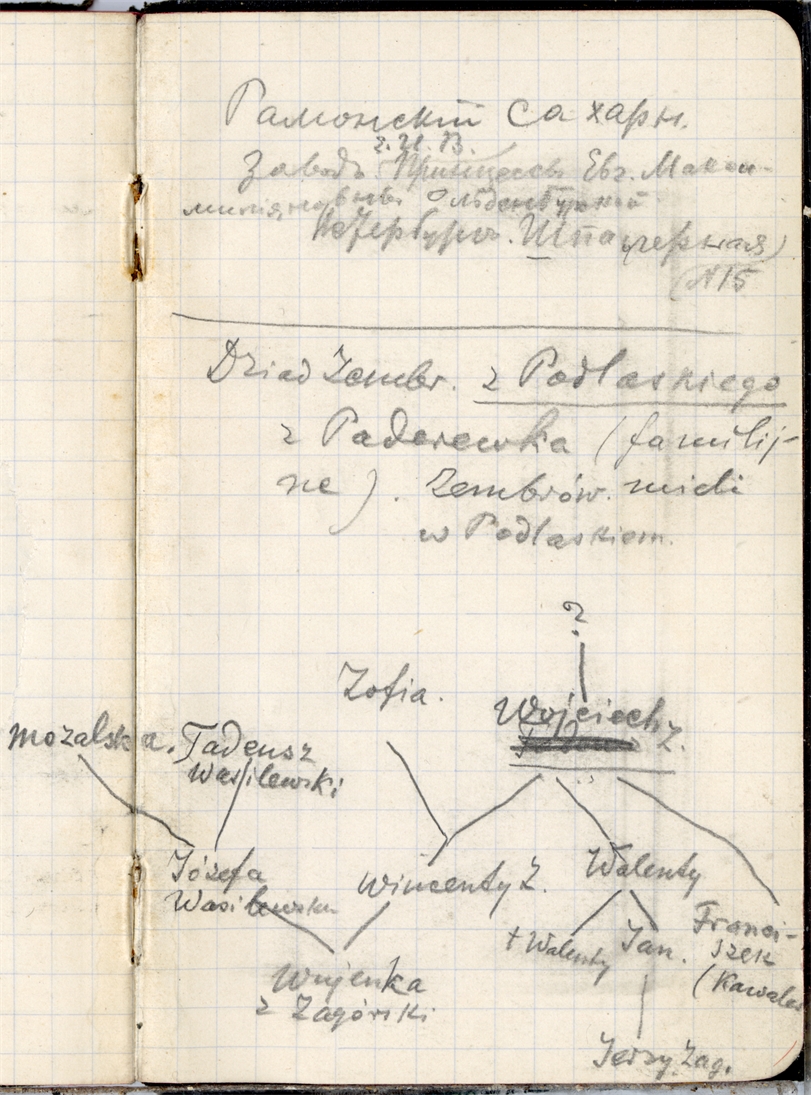 Рамонскій Сахарн.
Е.И.В.
Заводъ Принцессы Евг. Макси-
миліановны Ольденбургской
Петербургъ. Шпалерная)
(№15
Dziad Zembr. z Podlaskiego
z Paderewka (familij-
ne). Zembrów. mieli
w Podlaskiem.
?
Zofia.
Wojciech Z.
Mozalska.
Tadeusz
Wasilewski
Józefa
Wasilewska
Wincenty Z.
Walenty
Franci-
szek
(Kawaler
+ Walenty
Jan.
Wujenka
z Zagórski
Jerzy Zag.